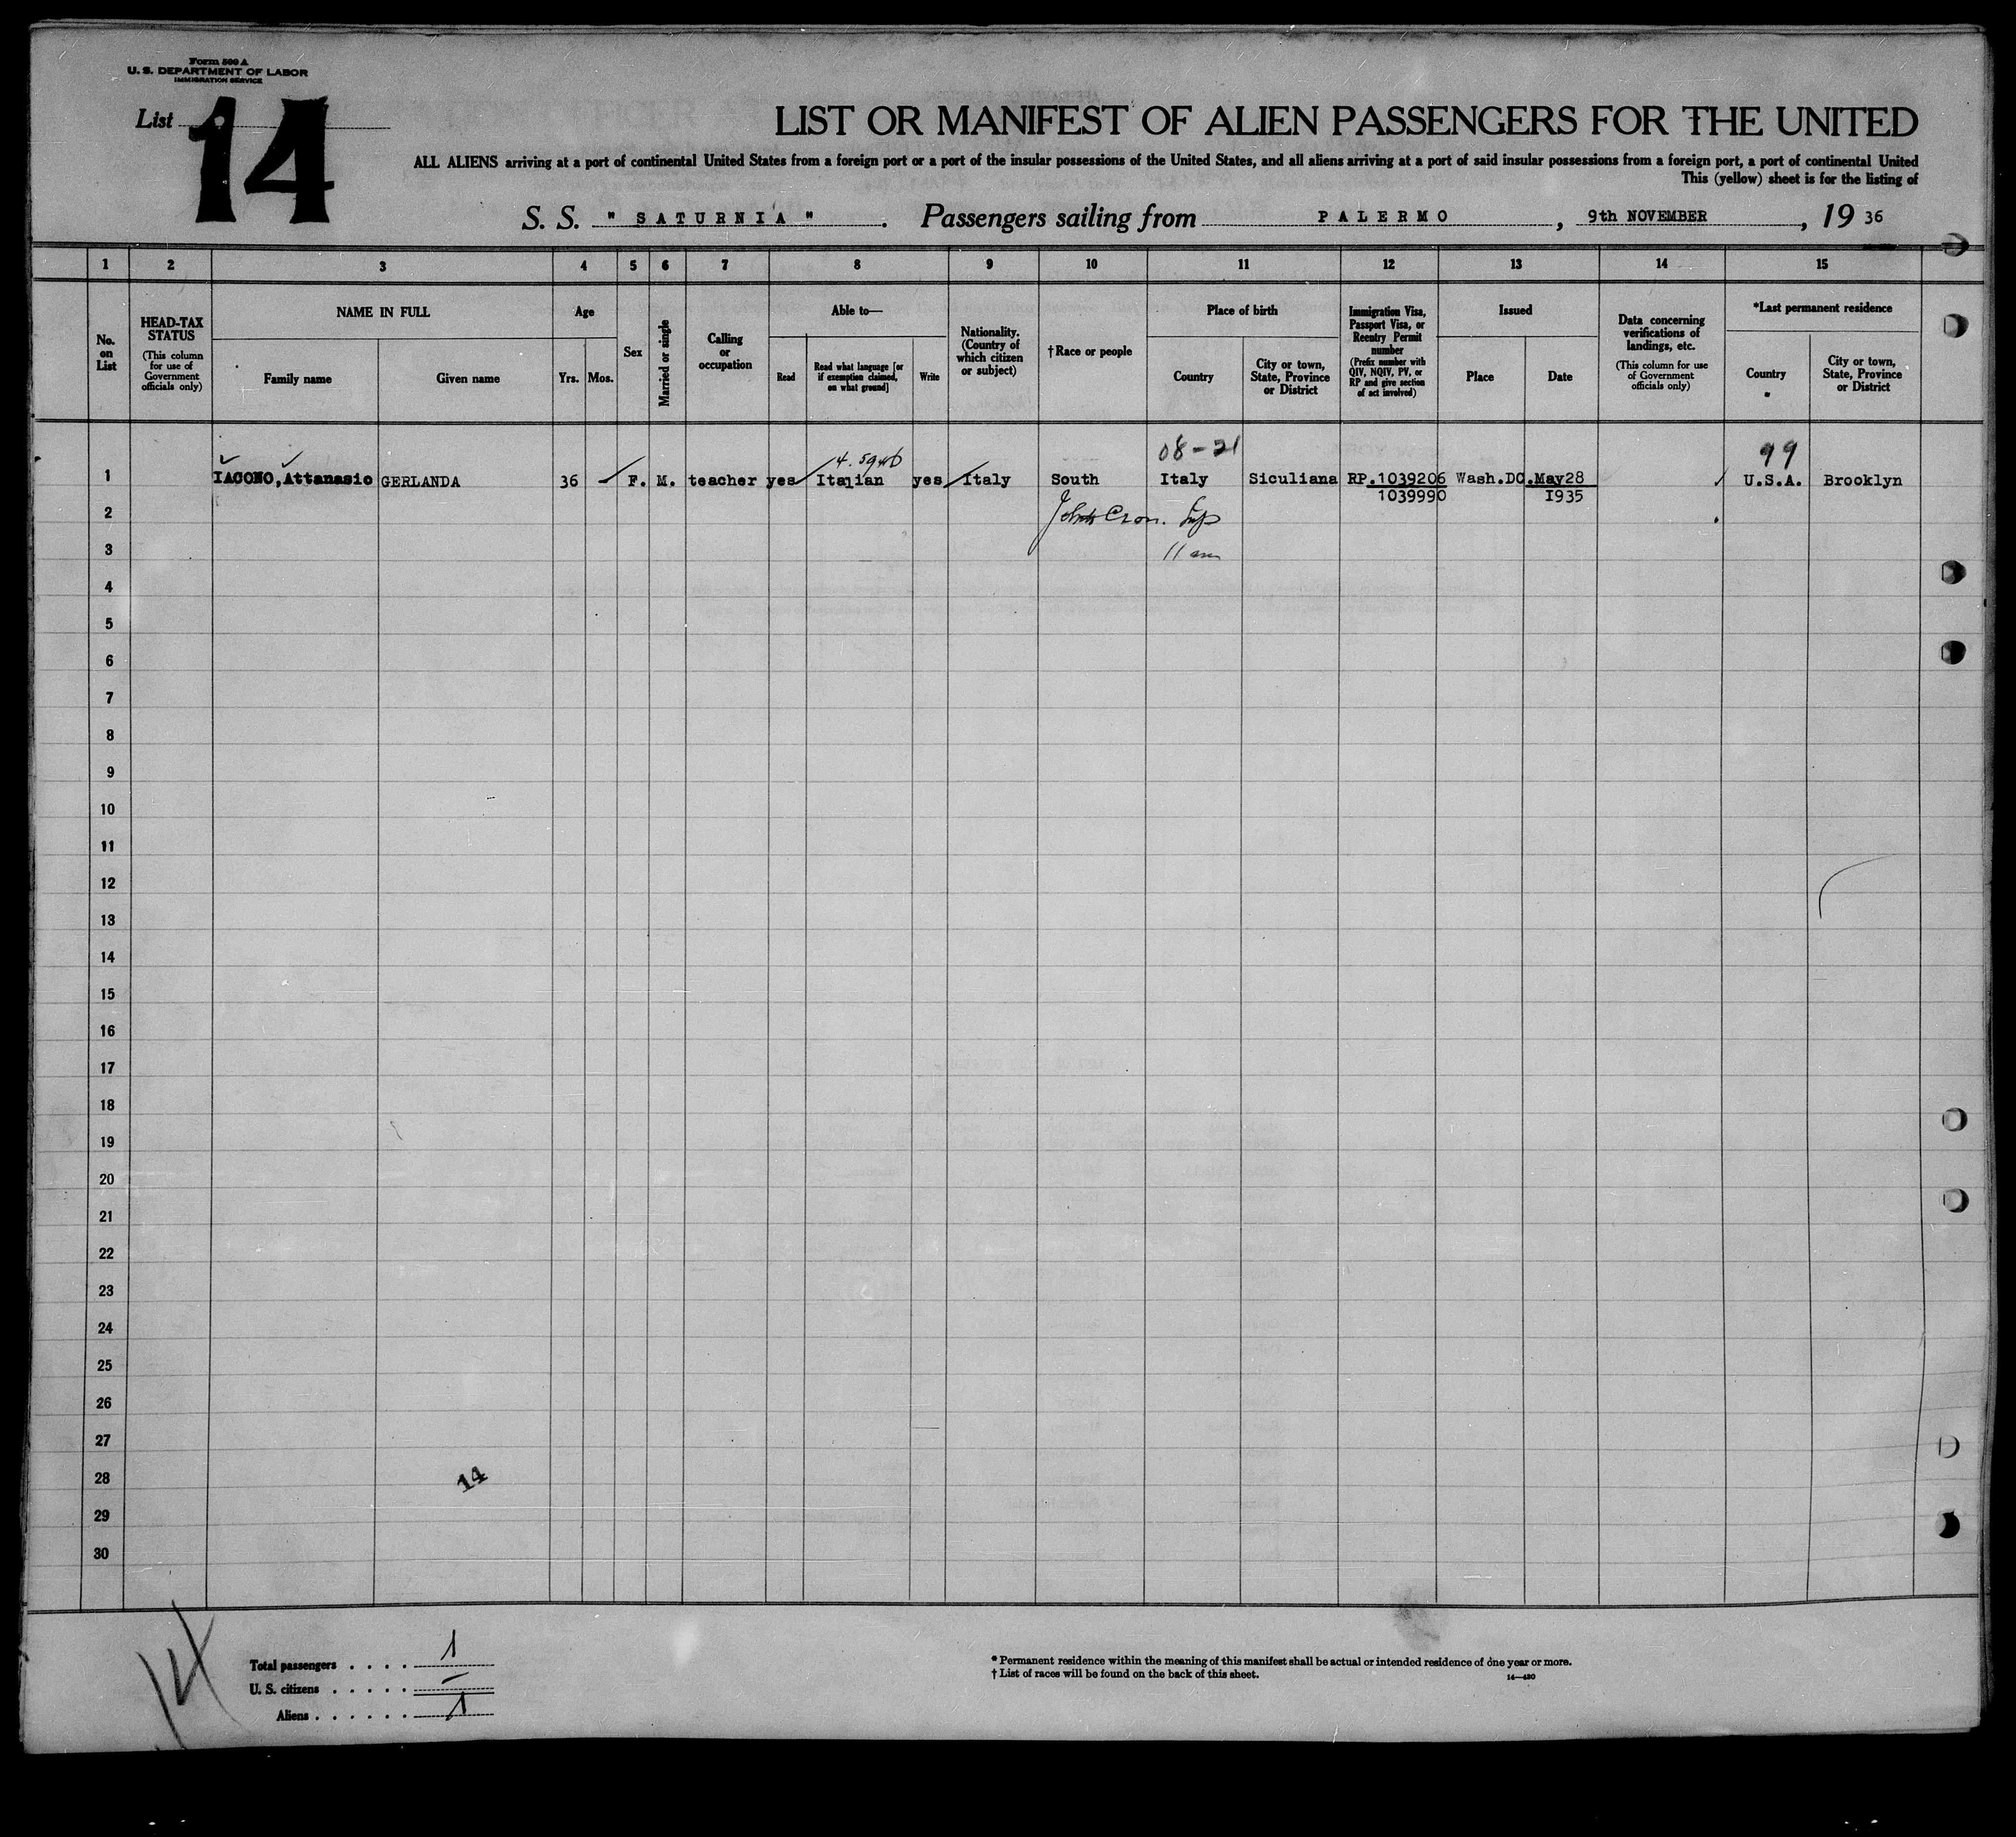 Form 500 A
U. S. DEPARTMENT OF LABOR
IMMIGRATION SERVICE
List 14
LIST OR MANIFEST OF ALIEN PASSENGERS FOR THE UNITED
ALL ALIENS arriving at a port of continental United States from a foreign port or a port of the insular possessions of the United States, and all aliens arriving at a port of said insular possessions from a foreign port, a port of continental United
This (yellow) sheet is for the listing of
S. S. " SATURNIA " . Passengers sailing from PALERMO , 9th NOVEMBER , 19 36
1 2 3 4 5 6 7 8 9 10 11 12 13 14 15
No. on List
HEAD-TAX STATUS (This column for use of Government officials only)
NAME IN FULL
Family name Given name
Age
Yrs. Mos.
Sex
Married or single
Calling or occupation
Able to—
Read
Read what language [or if exemption claimed, on what ground]
Write
Nationality. (Country of which citizen or subject)
† Race or people
Place of birth
Country
City or town, State, Province or District
Immigration Visa, Passport Visa, or Reentry Permit number (Prefix number with QIV, NQIV, PV, or RP and give section of act involved)
Issued
Place Date
Data concerning verifications of landings, etc. (This column for use of Government officials only)
*Last permanent residence
Country
City or town, State, Province or District
08-21 99
1 IACONO, Attanasio GERLANDA 36 F. M. teacher yes Italian yes Italy South Italy Siculiana RP.1039206 Wash.DC. May28 U.S.A. Brooklyn
1039990 I935
2
3 11 am
4
5
6
7
8
9
10
11
12
13
14
15
16
17
18
19
20
21
22
23
24
25
26
27
28 14
29
30
14
Total passengers . . . . 1
U. S. citizens . . . . . –
Aliens . . . . . . 1
* Permanent residence within the meaning of this manifest shall be actual or intended residence of one year or more.
† List of races will be found on the back of this sheet.
14—430